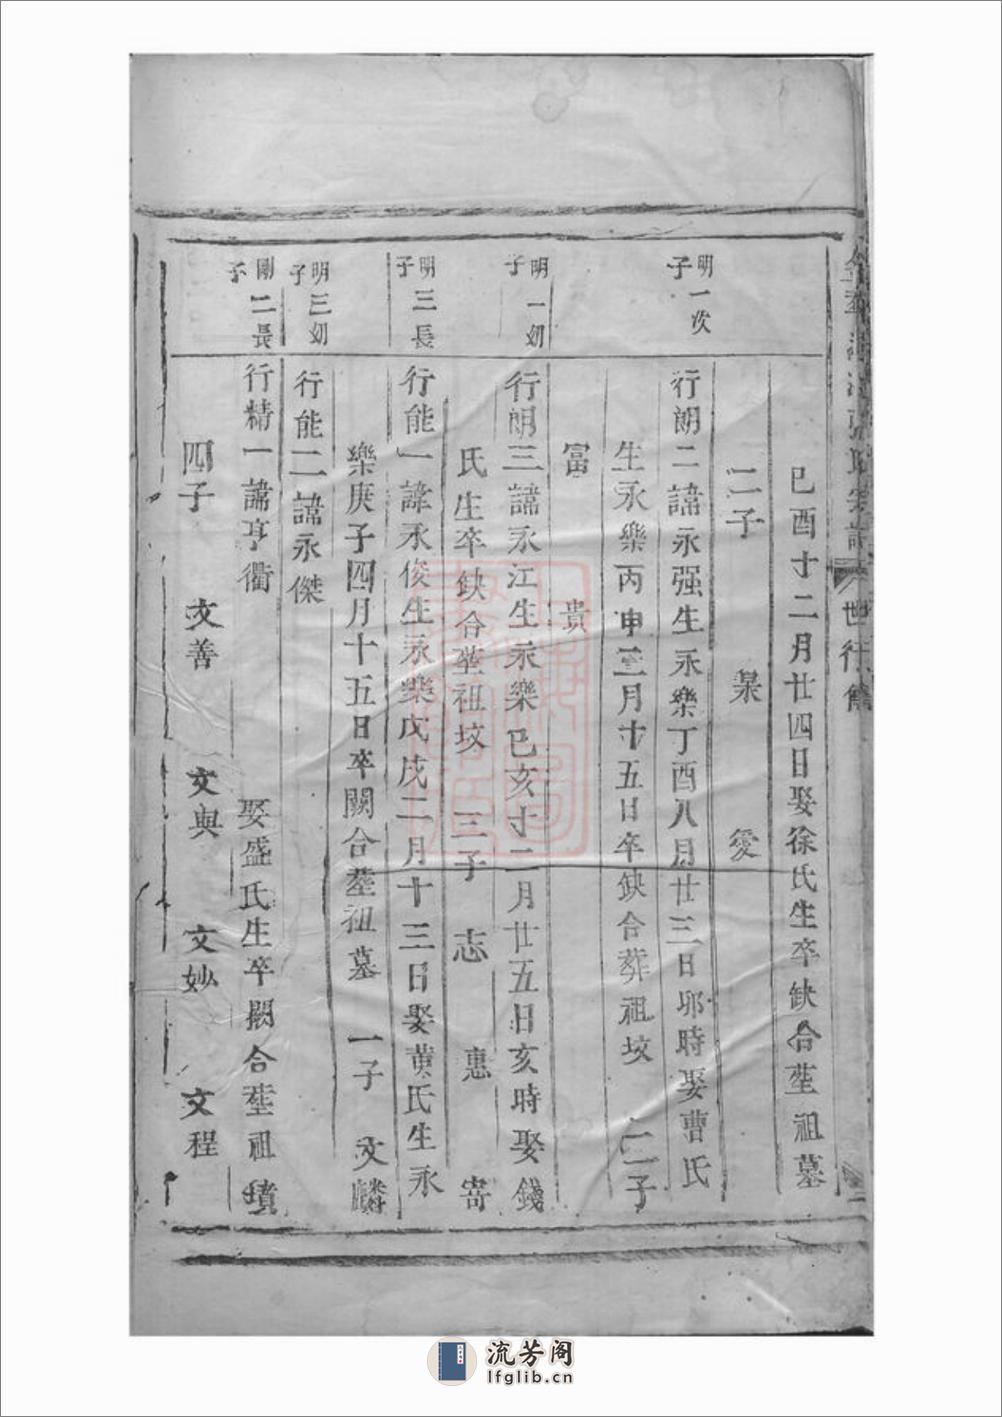 世行
己酉十二月廿四日娶徐氏生卒缺合塟祖墓
二子 杲 愛
明一次子
行朗二諱永强生永樂丁酉八月廿三日卯時娶曹氏
生永樂丙申三月十五日卒缺合葬祖坟 二子
富 貴
明一幼子
行朗三諱永江生永樂己亥十二月廿五日亥時娶錢
氏生卒缺合塟祖坟 三子 志 惠 寄
明三長子
行能一諱永俊生永樂戊戌二月十三日娶黄氏生永
樂庚子四月十五日卒闕合塟祖墓 一子 文麟
明三幼子
行能二諱永傑
剛二長子
行精一諱亨衢 娶盛氏生卒闕合塟祖墳
四子 文善 文與 文妙 文程
流芳阁
lfglib.cn